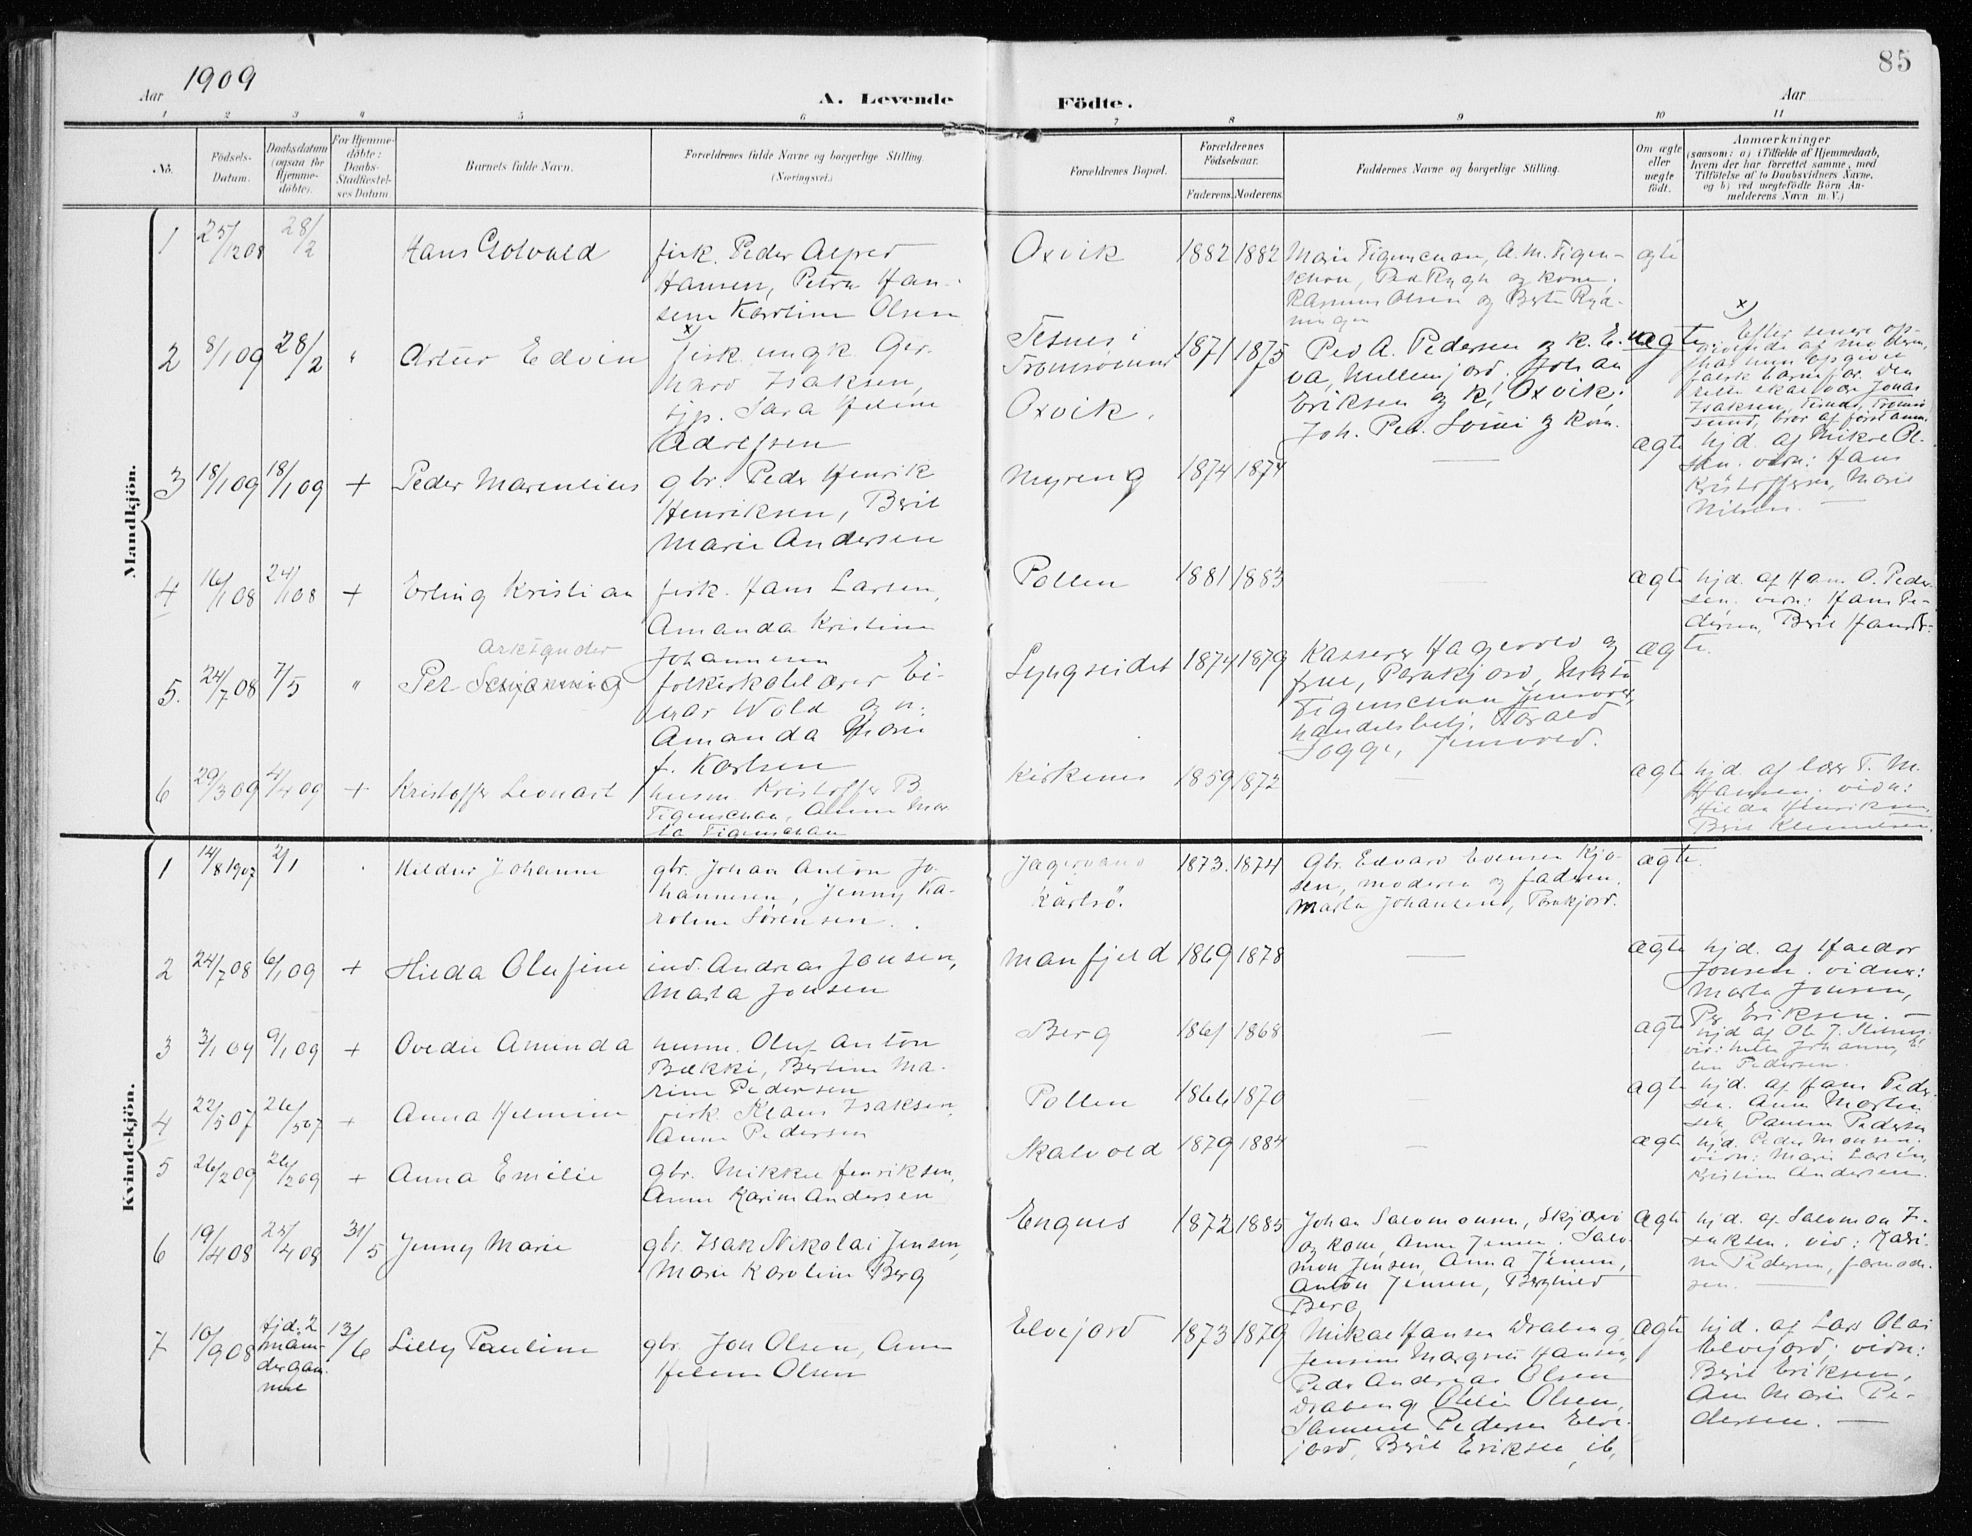 85
1909
Aar
A. Levende
Födte.
Aar
1 2 3 4 5 6 7 8 9 10 11
No.
Födsels-
Datum.
Daabsdatum
(ogsaa for
Hjemme-
döbte).
For Hjemme-
döbte:
Daabs-
Stadfæstel-
ses Datum
Barnets fulde Navn.
Forældrenes fulde Navne og borgerlige Stilling.
(Næringsvei.)
Forældrenes Bopæl.
Forældrenes
Födselsaar.
Faderens. Moderens.
Faddernes Navne og borgerlige Stilling.
Om ægte
eller
uægte
födt.
Anmærkninger
(saasom: a) i Tilfælde af Hjemmedaab,
hvem der har forrettet samme, med
Tilföielse af to Daabsvidners Navne,
og b) ved uægtefödte Börn An-
melderens Navn m. V.)
Mandkjön.
1 25/12 08 28/2 Hans Gotvald
fisk. Peder Alfred
Hansen, Petra Han-
sine Karoline Olsen
Oxvik 1882 1882
Marie Tigenschou, A. M. Tigen-
schou, Ped Rygh og kone,
Rasmus Olsen og Berte Ryd-
ningen
ægte
2 8/1 09 28/2 " Artur Edvin
x)
fisk ungk Ger-
hard Isaksen,
tjp. Sara Helene
Adresen
Tesnes i
Tromsøsund
Oxvik.
1871 1875
Ped A. Pedersen og k. E-
va, Mellemjord. Johan
Eriksen og k, Oxvik;
Joh. Ped. og kon.
uægte
x)
Efter senere op-
givende af moderen
har hun opgivet
falsk barnefar. Den
rette skal være Jonas
Isaksen, Tisnes, Tromsø
sund, bror af førstanm.
3 18/1 09 18/1 09 + Peder Marentius
gbr. Peder Henrik
Henriksen, Berit
Marie Andersen
Myreng 1874 1874 —
ægte
hjd. af Mikkel Ol-
sen. vidn: Hans
Kristoffersen, Marit
Nilsen. —
4 16/1 08 24/1 08 + Erling Kristian
fisk. Hans Larsen,
Amanda Kristine
Johannesen
Pollen 1881 1883 —
ægte
hjd. af Hans O. Peder-
sen. vidn: Hans Pe-
dersen, Berit Hansdt:
5. 24/7 08 7/5 " Per
folkeskolelærer Ei-
nar Wold og h:
Amanda Marie
f. Karlsen
Lyngseidet 1874 1879
Kasserer Hagerold og
frue, Parakjord,
Tigenschou Jensvold,
handelsbetj. Harald
Sogge, Jensvold.
ægte.
6 29/3 09 4/4 09 + Kristoffer Leonart
husm Kristoffer B
Tigenschou, Anne Mar-
ta Tigenschou
Kirkenes 1859 1872 —
ægte
hjd. af lærer T. M.
Hansen. vidn:
Hilda Henriksen
Berit Klemetsen.
Kvindekjön.
1 14/8 1907 2/1 Hildur Johanne
gbr. Johan Anton Jo-
hannesen, Jenny Ka-
roline Sørensen.
Jagervand
Karlsö.
1873. 1874
Gbr. Edvard Evensen Kjo-
sen, moderen og faderen.
Marta Johansen,
ægte.
2 24/7 08 6/1 09 + Hilda Olufine
ind. Andreas Jonsen,
Marta Jonsen
Manfjeld 1869 1878 —
ægte
hjd. af Haldor
Jonsen. vidner:
Marta Jonsen,
Pr Eriksen. —
3 3/1 09 9/1 09 + Ovedie Aminda
husm. Oluf Anton
Bækki, Bertine Ma-
rine Pedersen
Berg 1861 1868 —
ægte
hjd af Ole J.
vid: Johanne, E-
len Pedersen.
4 22/5 07 26/5 07 + Anna Helmine
fisk. Klaus Isaksen.
Anne Pedersen
Pollen 1866 1870 —
ægte
hjd. af Hans Peder-
sen. Anne Martin-
sen, Pedersen
5 26/2 09 26/2 09 + Anna Emilie
gbr. Mikkel Henriksen,
Anne Karine Andersen
Skalvold 1879 1884 —
ægte
hjd. Peder Monsen.
vidn: Marie Larsen,
Kristine Andersen.
6 19/4 08 25/4 08 31/5 Jenny Marie
gbr. Isak Nikolai Jensen,
Marie Karoline Berg
Engnes 1872 1885
Johan Salomonsen, Skjærvö
og kone, Anne Jensen. Salo-
mon Jensen, Anna Jensen,
Anton Jensen, Berghild
Berg
ægte
hjd. af Salomon I-
saksen. vid: Kari-
ne Pedersen,
sen. —
7 10/9 08 hjd. 2
maan-
der gam-
mel 13/6 Lilly Pauline
gbr. Jon Olsen, Ane
Helene Olsen
Elvejord 1873 1879
Mikal Hansen Draberg,
Jensine Margret Hansen,
Peder Andreas Olsen
Draberg, Otelie Olsen,
Samuel Pedersen Elve-
jord, Berit Eriksen, ib,
ægte
hjd. af Lars Olai
Elvejord; vidn:
Berit Eriksen,
Ane Marie Pe-
dersen. —